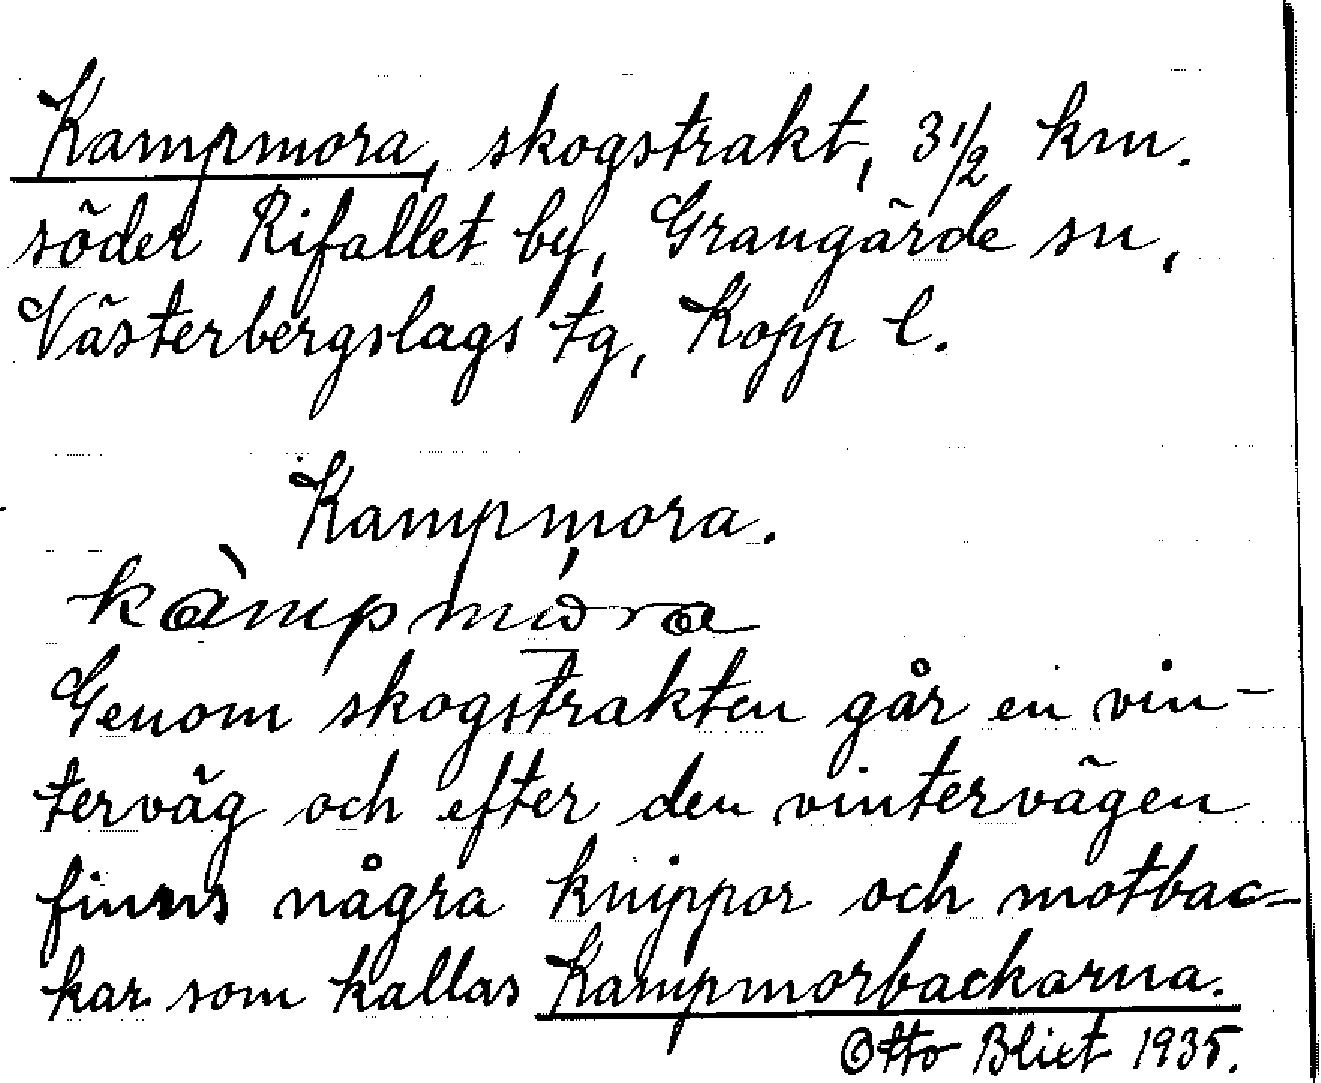 Kampmora, skogstrakt, 3 1/2 km.
söder Rifallet by, Grangärde sn,
Västerbergslags tg, Kopp l.
Kampmora.
kàmpmora
Genom skogstrakten går en vin-
terväg och efter den vintervägen
finns några knippor och motbac-
kar som kallas Kampmorbackarna.
Otto Blixt 1935.